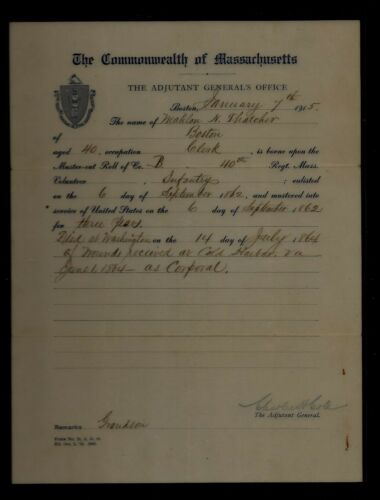 The Commonwealth of Massachusetts
THE ADJUTANT GENERAL'S OFFICE
Boston, January 7th 1915.
The name of Mahlon H. Thatcher
of Boston
aged 40, occupation Clerk, is borne upon the
Muster-out Roll of Co. B, 40th Regt. Mass.
Volunteer Infantry; enlisted
on the 6 day of September 1862, and mustered into
service of United States on the 6 day of September 1862
for three years.
Died at Washington on the 14 day of July 1864
of wounds received at Cold Harbor, Va
June 1, 1864 — as Corporal.
The Adjutant General.
Remarks Grandson